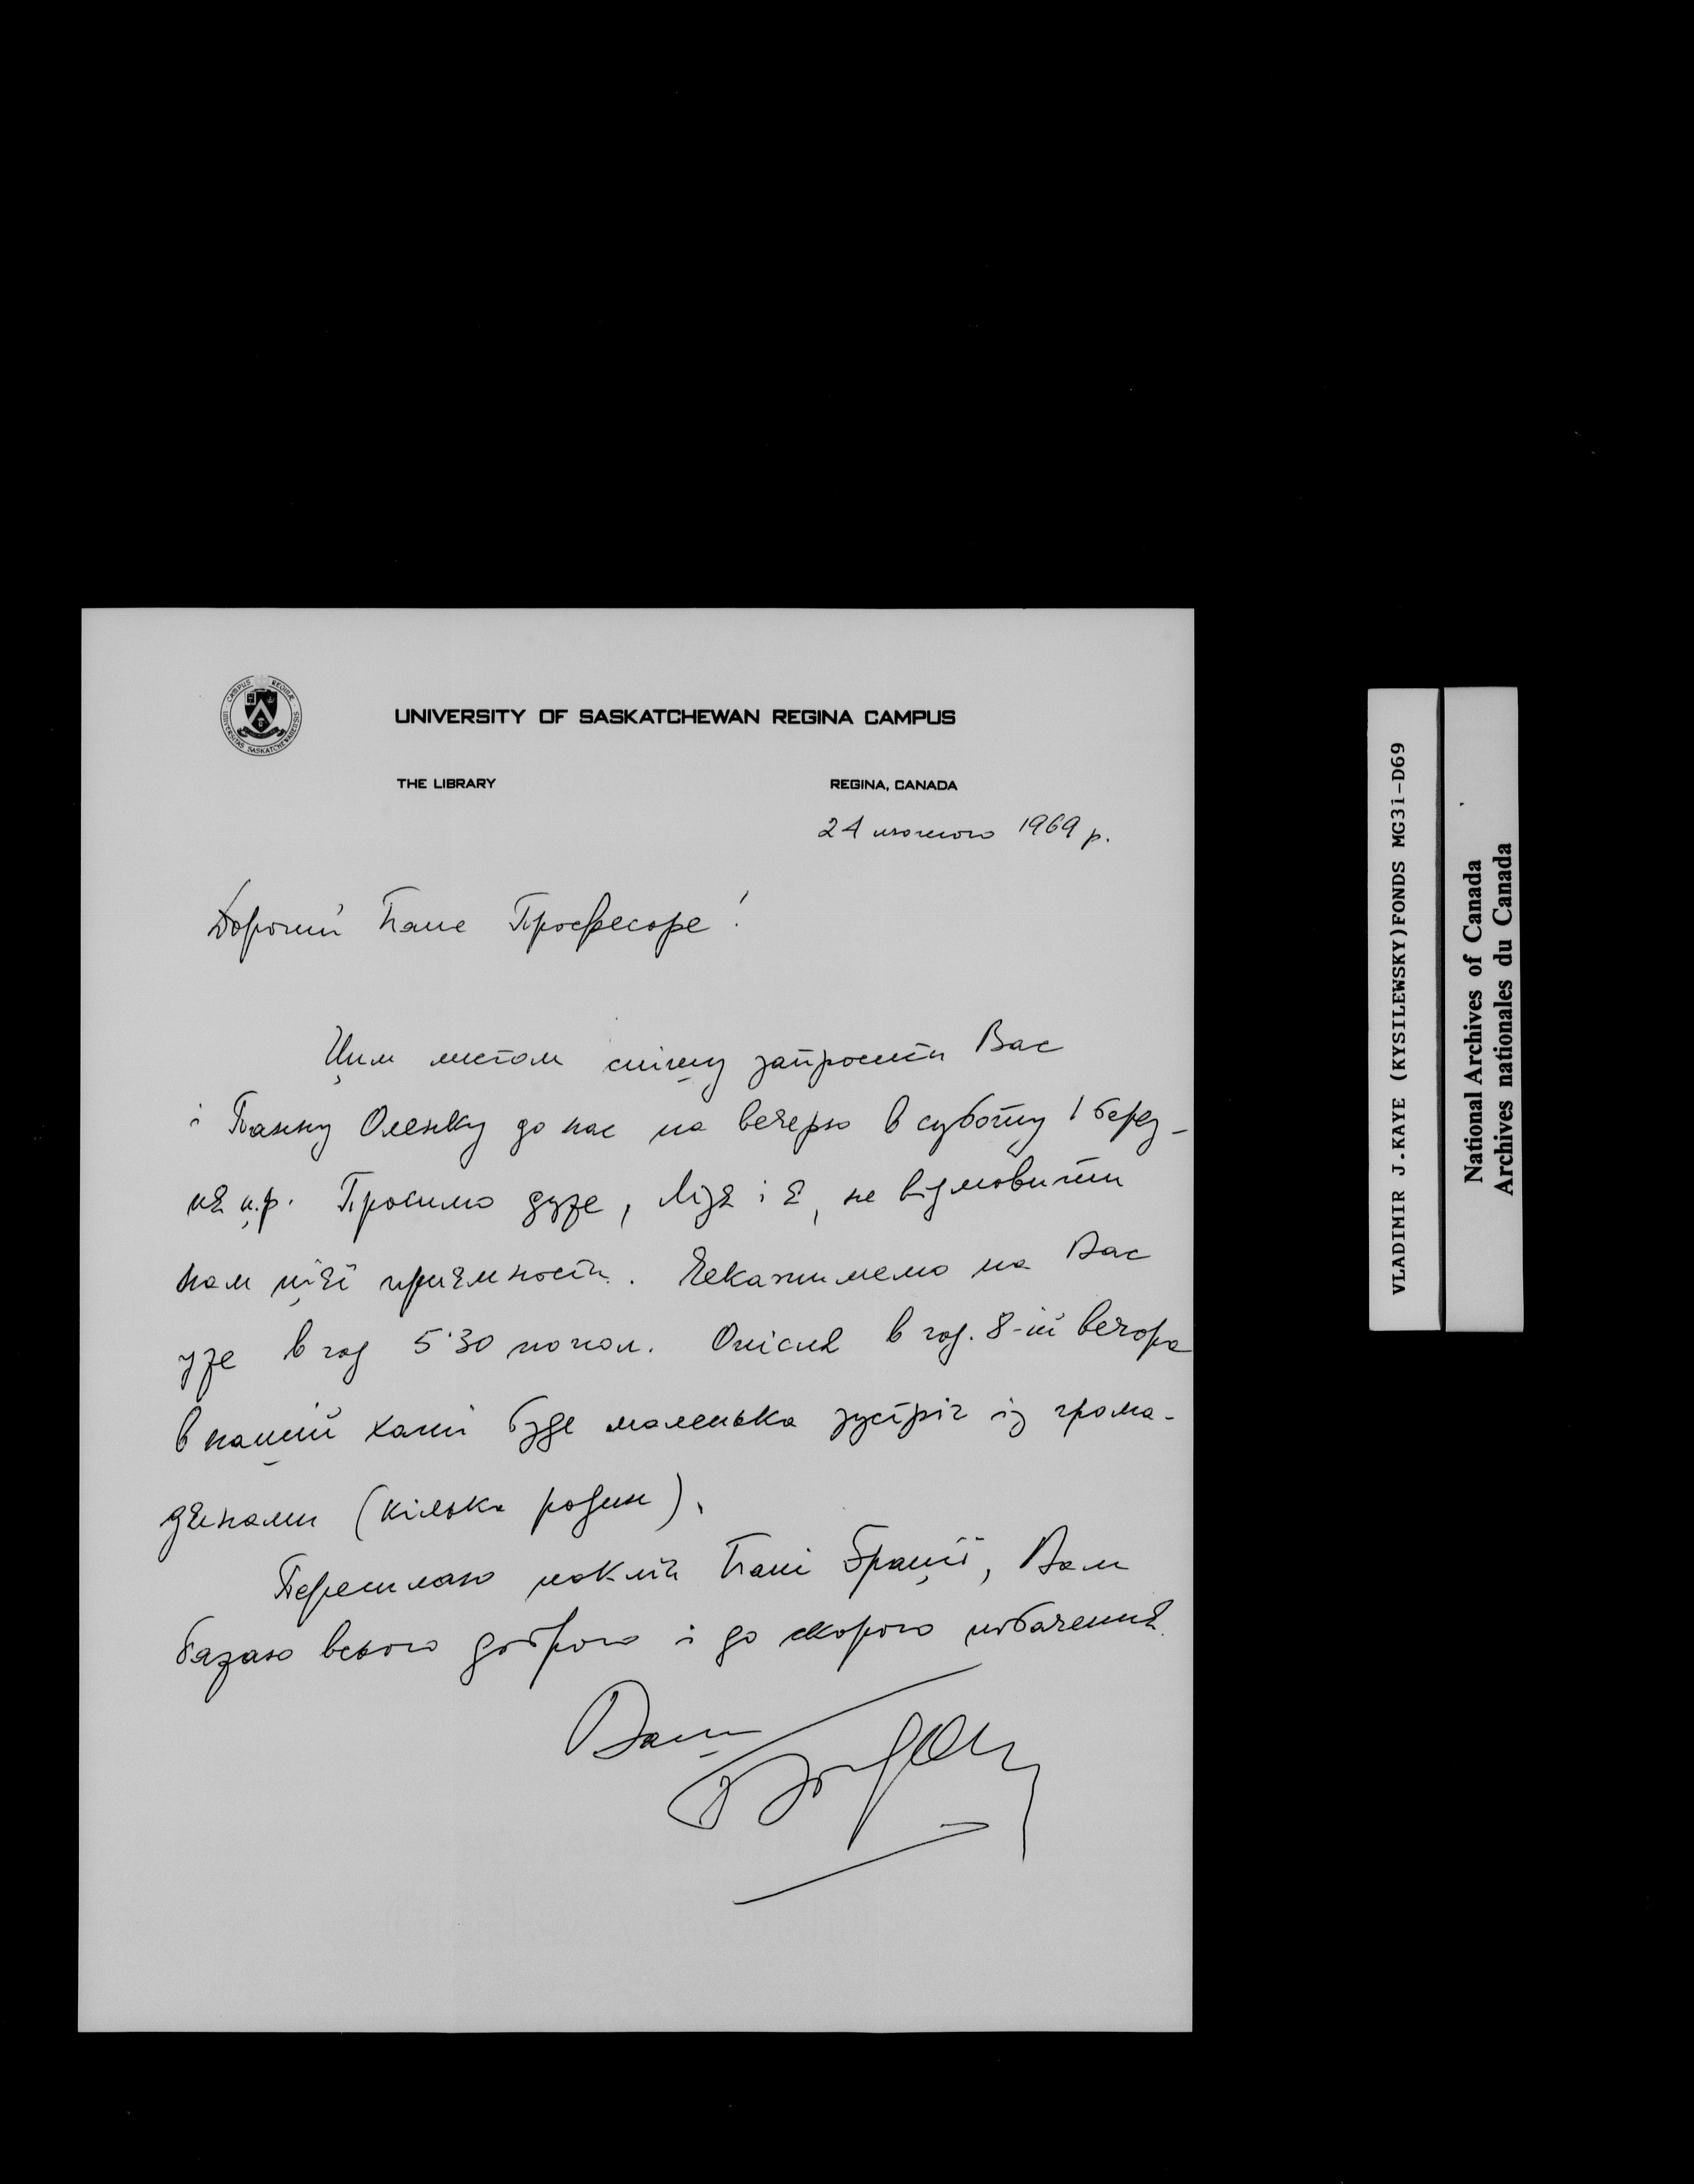 CAMPUS REGINAE
UNIVERSITAS SASKATCHEWANENSIS
UNIVERSITY OF SASKATCHEWAN REGINA CAMPUS
THE LIBRARY
REGINA, CANADA
24 лютого 1969 р.
Дорогий Пане Професоре!
Цим листом спішу запросити Вас
і Панну Оленку до нас на вечерю в суботу 1 берез-
ня ц.р. Просимо дуже, Лідя і я, не відмовити
нам цієї приємности. Чекатимемо на Вас
уже в год 5˙30 попол. Опісля в год. 8-ій вечора
в нашій хаті буде маленька зустріч із грома-
дянами (кілька родин).
Пересилаю поклін Пані Грації, Вам
бажаю всього доброго і до скорого побачення.
Ваш
Богдан
VLADIMIR J.KAYE (KYSILEWSKY)FONDS MG31-D69
National Archives of Canada
Archives nationales du Canada